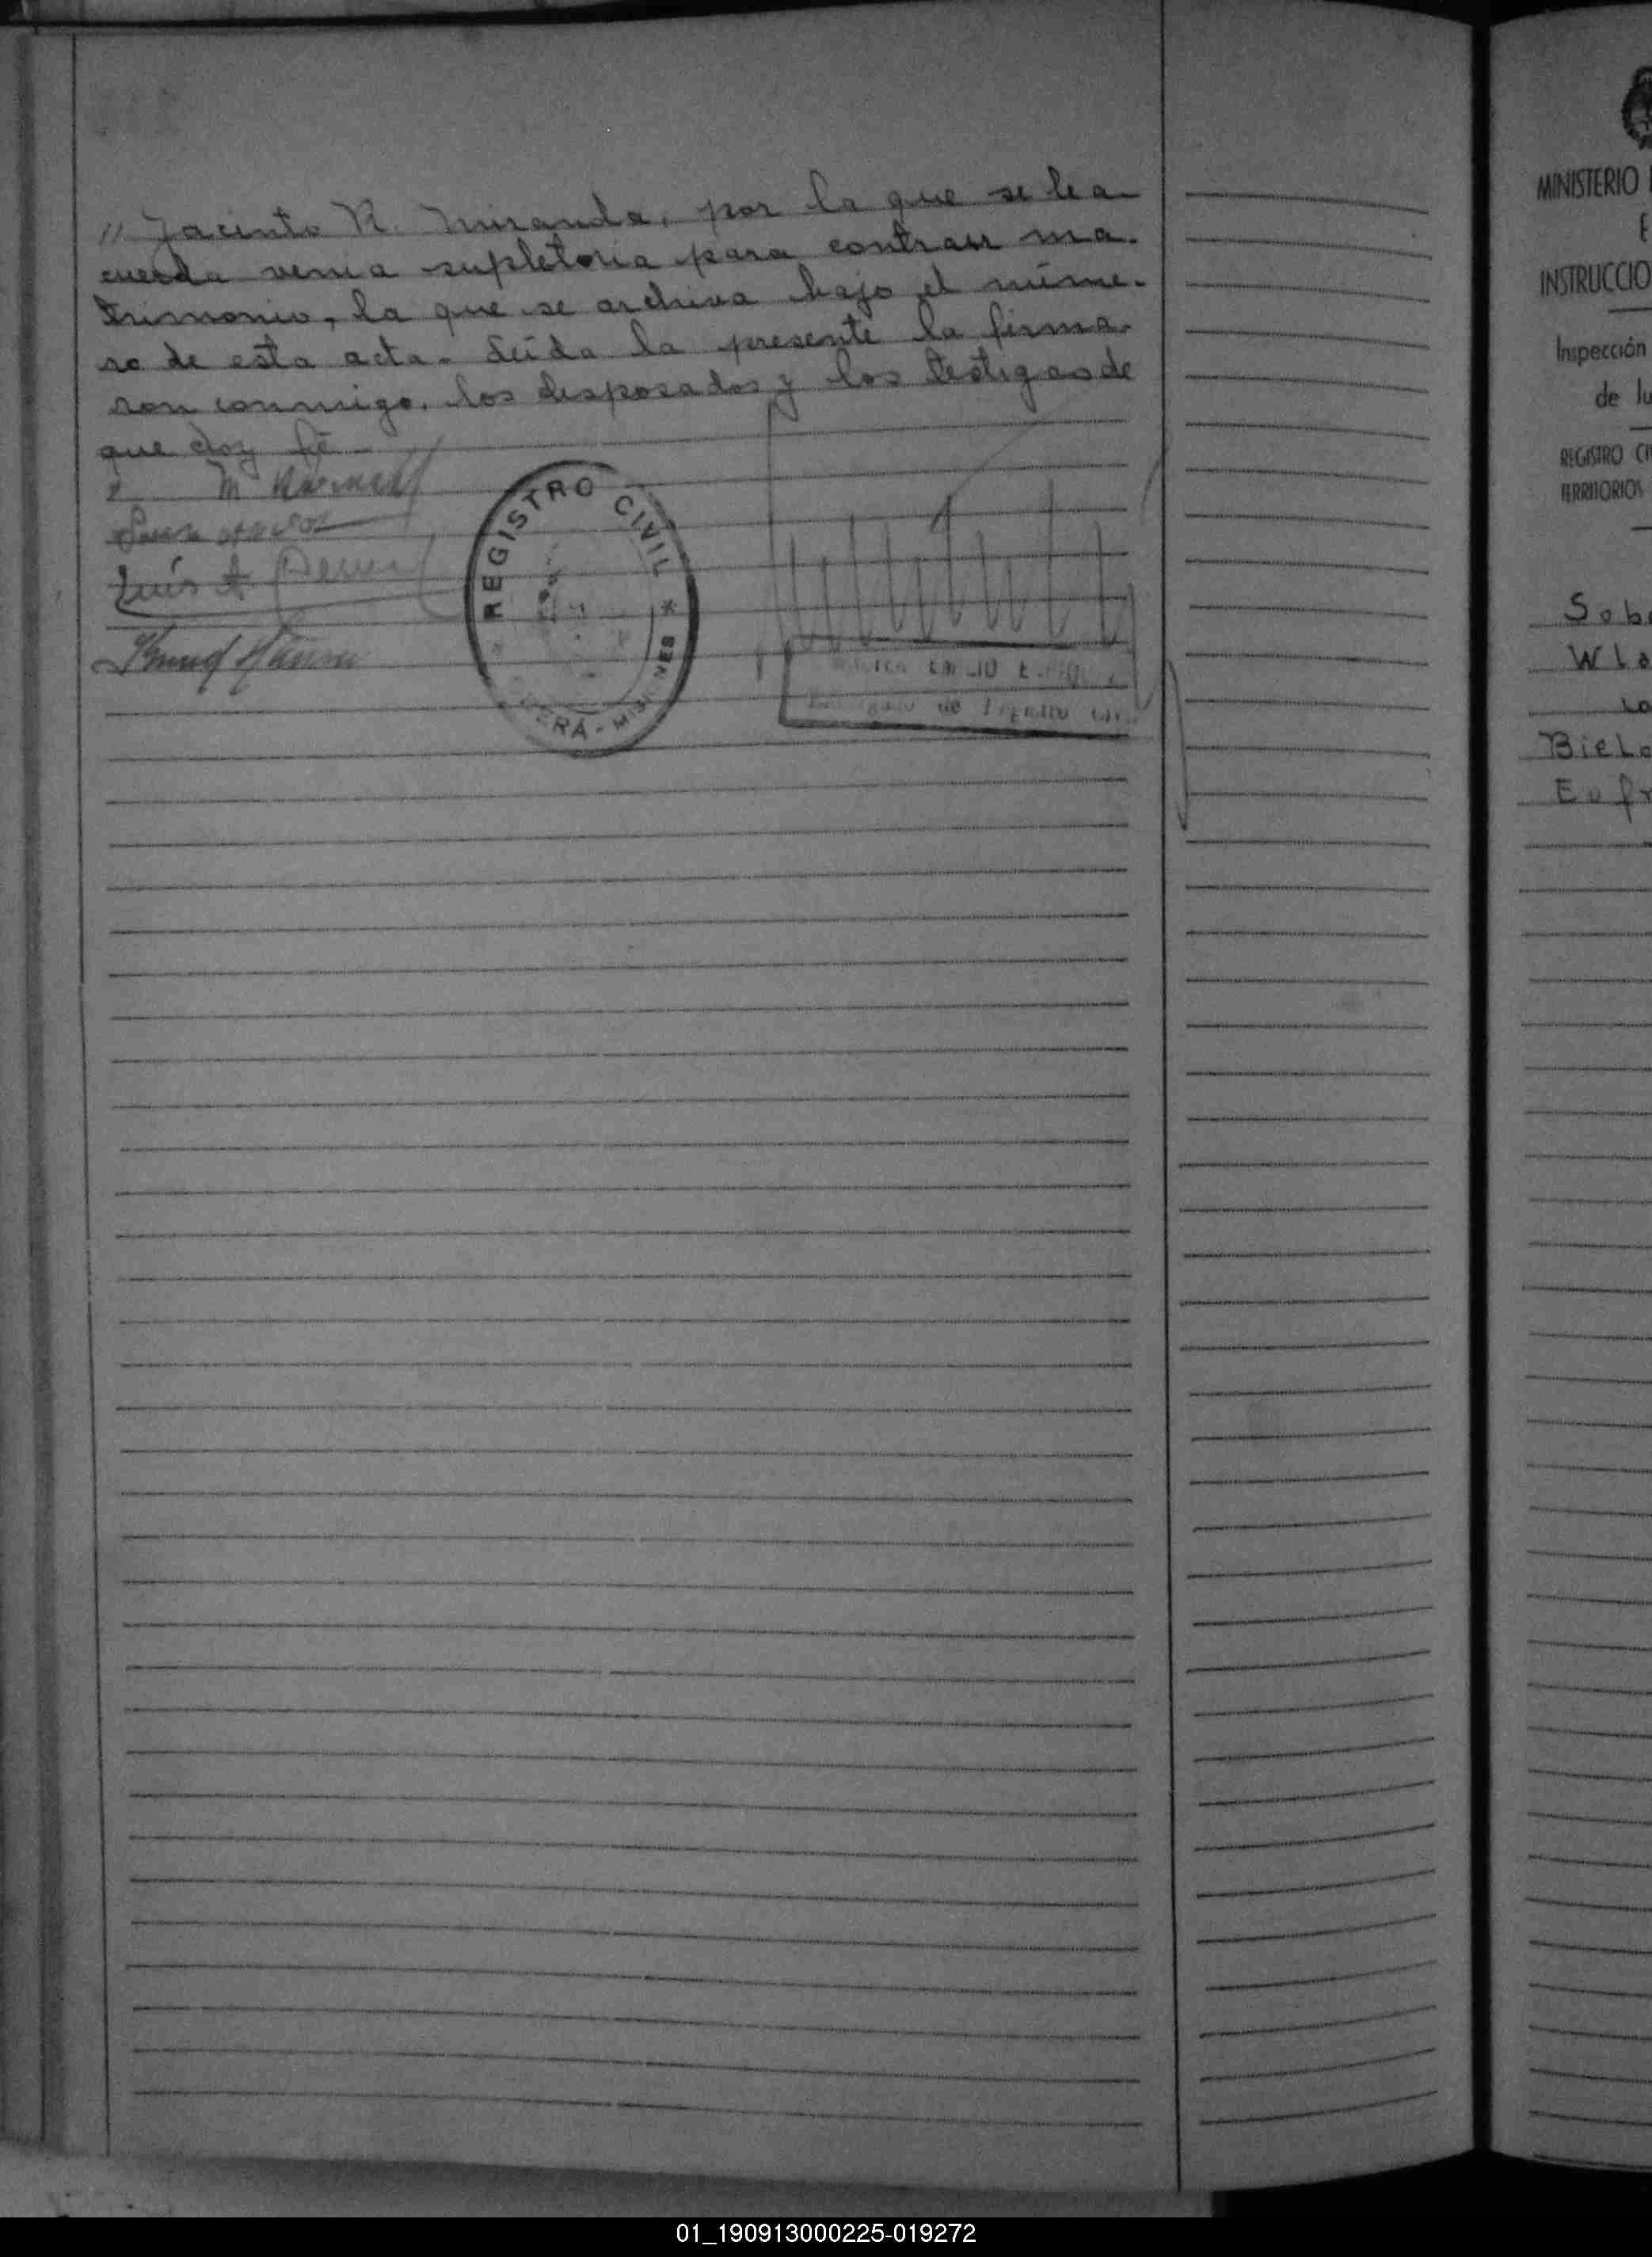 // Jacinto R. Miranda, por la que se le a-
cuerda venia supletoria para contraer ma-
trimonio, la que se archiva bajo el núme-
ro de esta acta. Leída la presente la firma-
ron conmigo, los desposados y los testigos de
que doy fé.-
Luis A.
REGISTRO CIVIL
MISIONES
de Registro Civil
MINISTERIO
INSTRUCCIO
Inspección
de Ju
REGISTRO CI
TERRITORIOS
Sob
Wla
Biel
Eufr
01_190913000225-019272